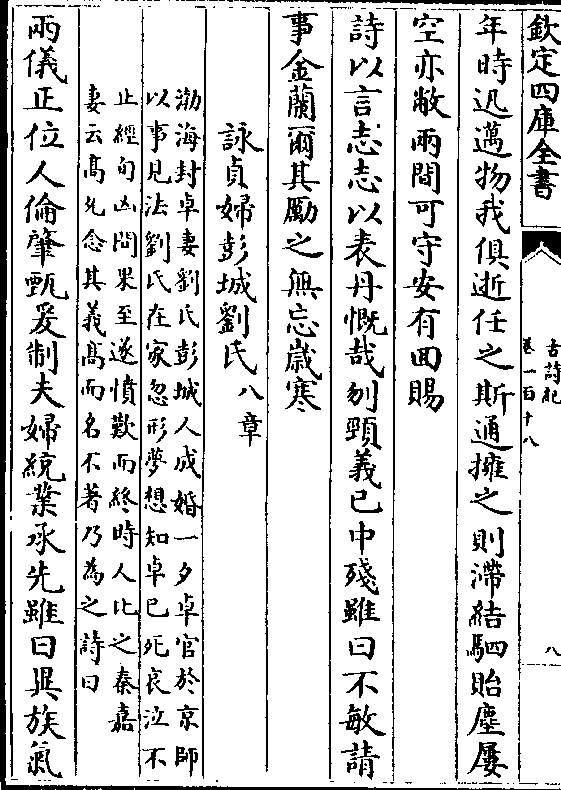 欽定四庫全書
古詩紀
卷一百十八
八
年時迅邁物我俱逝任之斯通擁之則滯結駟貽塵屢
空亦敝兩間可守安有回賜
詩以言志志以表丹慨哉刎頸義已中殘雖曰不敏請
事金蘭爾其勵之無忘歳寒
詠貞婦彭城劉氏八章
渤海封卓妻劉氏彭城人成婚一夕卓官於京師
以事見法劉氏在家忽形夢想知卓已死哀泣不
止經旬凶問果至遂憤歎而終時人比之秦嘉
妻云髙允念其義髙而名不著乃為之詩曰
兩儀正位人倫肇甄爰制夫婦統業承先雖曰異族氣